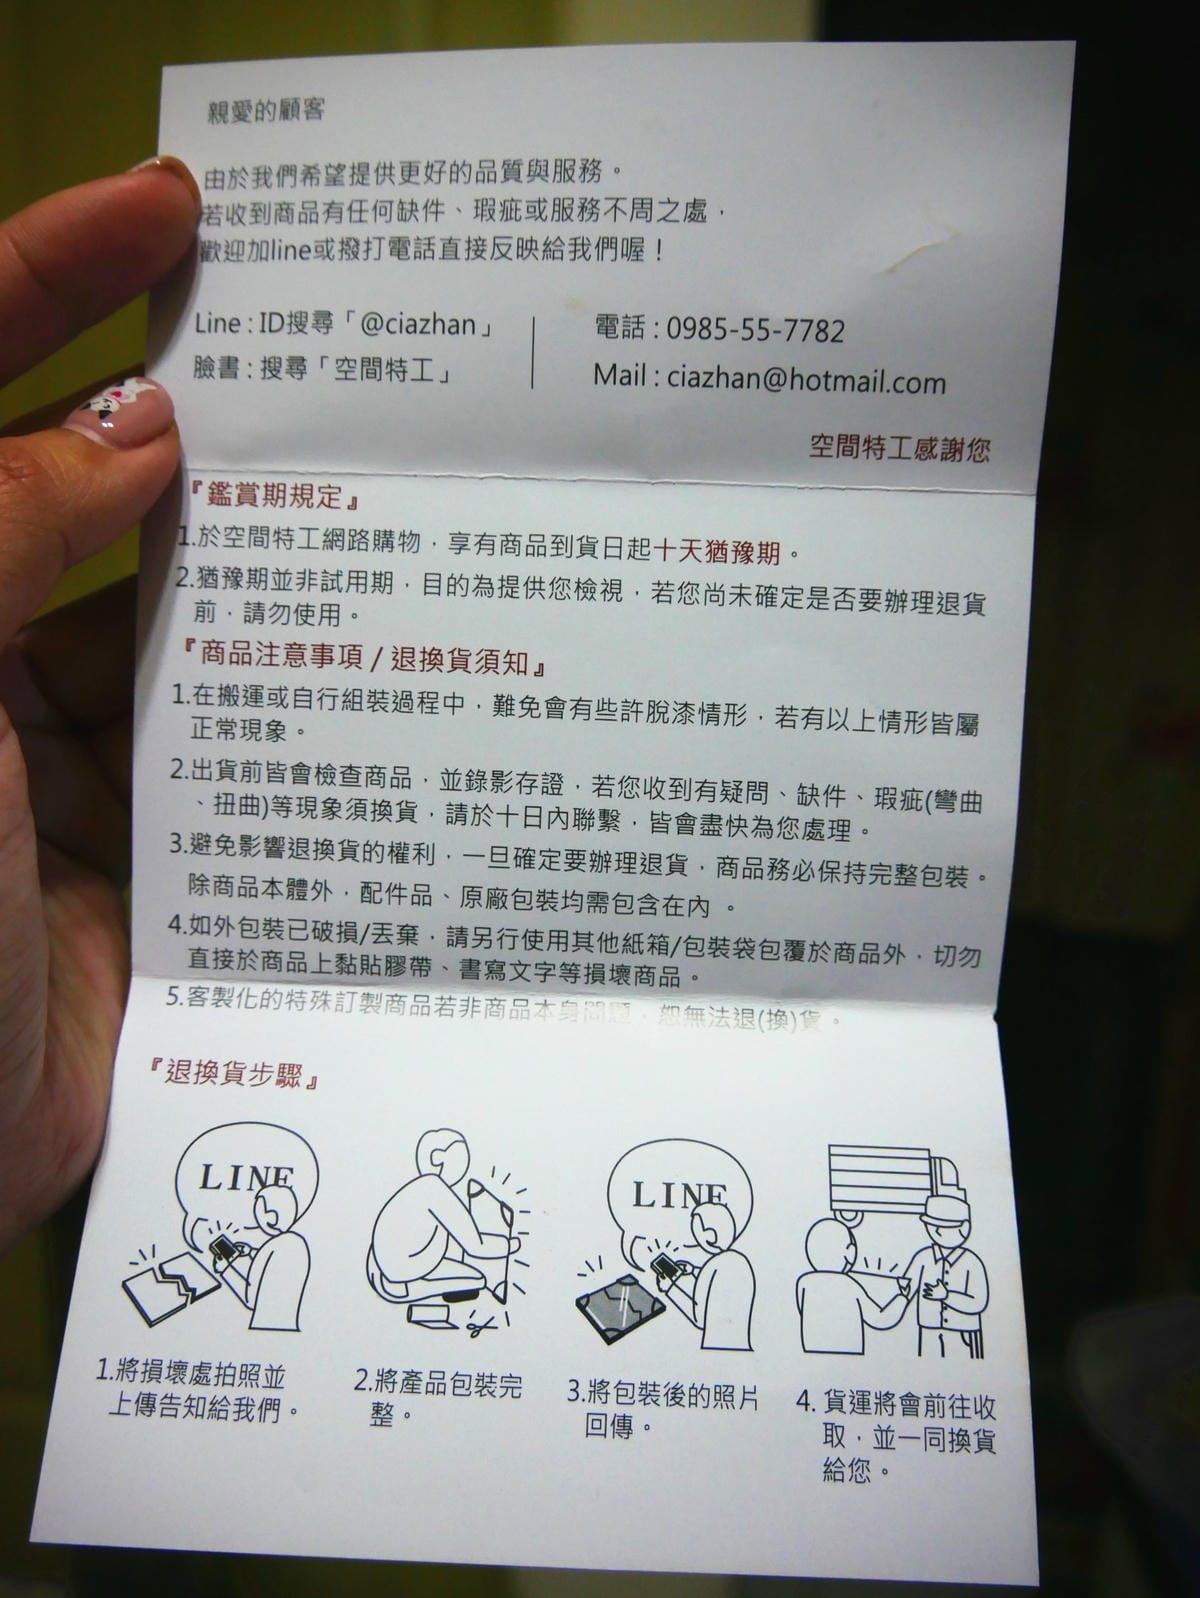 親愛的顧客
由於我們希望提供更好的品質與服務。
若收到商品有任何缺件、瑕疵或服務不周之處，
歡迎加line或撥打電話直接反映給我們喔！
Line : ID搜尋「@ciazhan」
臉書 : 搜尋「空間特工」
電話 : 0985-55-7782
Mail : ciazhan@hotmail.com
空間特工感謝您
『鑑賞期規定』
1.於空間特工網路購物，享有商品到貨日起十天猶豫期。
2.猶豫期並非試用期，目的為提供您檢視，若您尚未確定是否要辦理退貨
前，請勿使用。
『商品注意事項 / 退換貨須知』
1.在搬運或自行組裝過程中，難免會有些許脫漆情形，若有以上情形皆屬
正常現象。
2.出貨前皆會檢查商品，並錄影存證，若您收到有疑問、缺件、瑕疵(彎曲
、扭曲)等現象須換貨，請於十日內聯繫，皆會盡快為您處理。
3.避免影響退換貨的權利，一旦確定要辦理退貨，商品務必保持完整包裝。
除商品本體外，配件品、原廠包裝均需包含在內 。
4.如外包裝已破損/丟棄，請另行使用其他紙箱/包裝袋包覆於商品外，切勿
直接於商品上黏貼膠帶、書寫文字等損壞商品。
5.客製化的特殊訂製商品若非商品本身問題，恕無法退(換)貨。
『退換貨步驟』
LINE
LINE
1.將損壞處拍照並
上傳告知給我們。
2.將產品包裝完
整。
3.將包裝後的照片
回傳。
4. 貨運將會前往收
取，並一同換貨
給您。